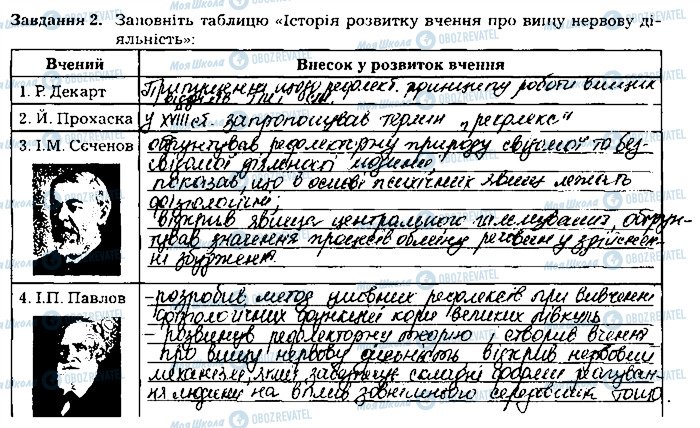 Завдання 2. Заповніть таблицю «Історія розвитку вчення про вищу нервову ді-
яльність»:
Вчений
Внесок у розвиток вчення
1. Р. Декарт
Припущення щодо рефлект. принципу роботи вищих
відділів
2. Й. Прохаска
У XVIII ст. запропонував термін „рефлекс"
3. І.М. Сєченов
обґрунтував рефлекторну природу свідомої та без-
свідомої діяльності людини;
показав, що в основі психічних явищ лежать
фізіологічні;
відкрив явище центрального гальмування, обґрун-
тував значення процесів обміну речовин у здійснен-
ні збудження.
4. І.П. Павлов
- розробив метод умовних рефлексів при вивченні
фізіологічних функцій кори великих півкуль
- розвинув рефлекторну теорію і створив вчення
про вищу нервову діяльність відкрив нервовий
механізм, який забезпечує складні форми реагуван-
ня людини на вплив зовнішнього середовища тощо
Моя Школа OBOZREVATEL